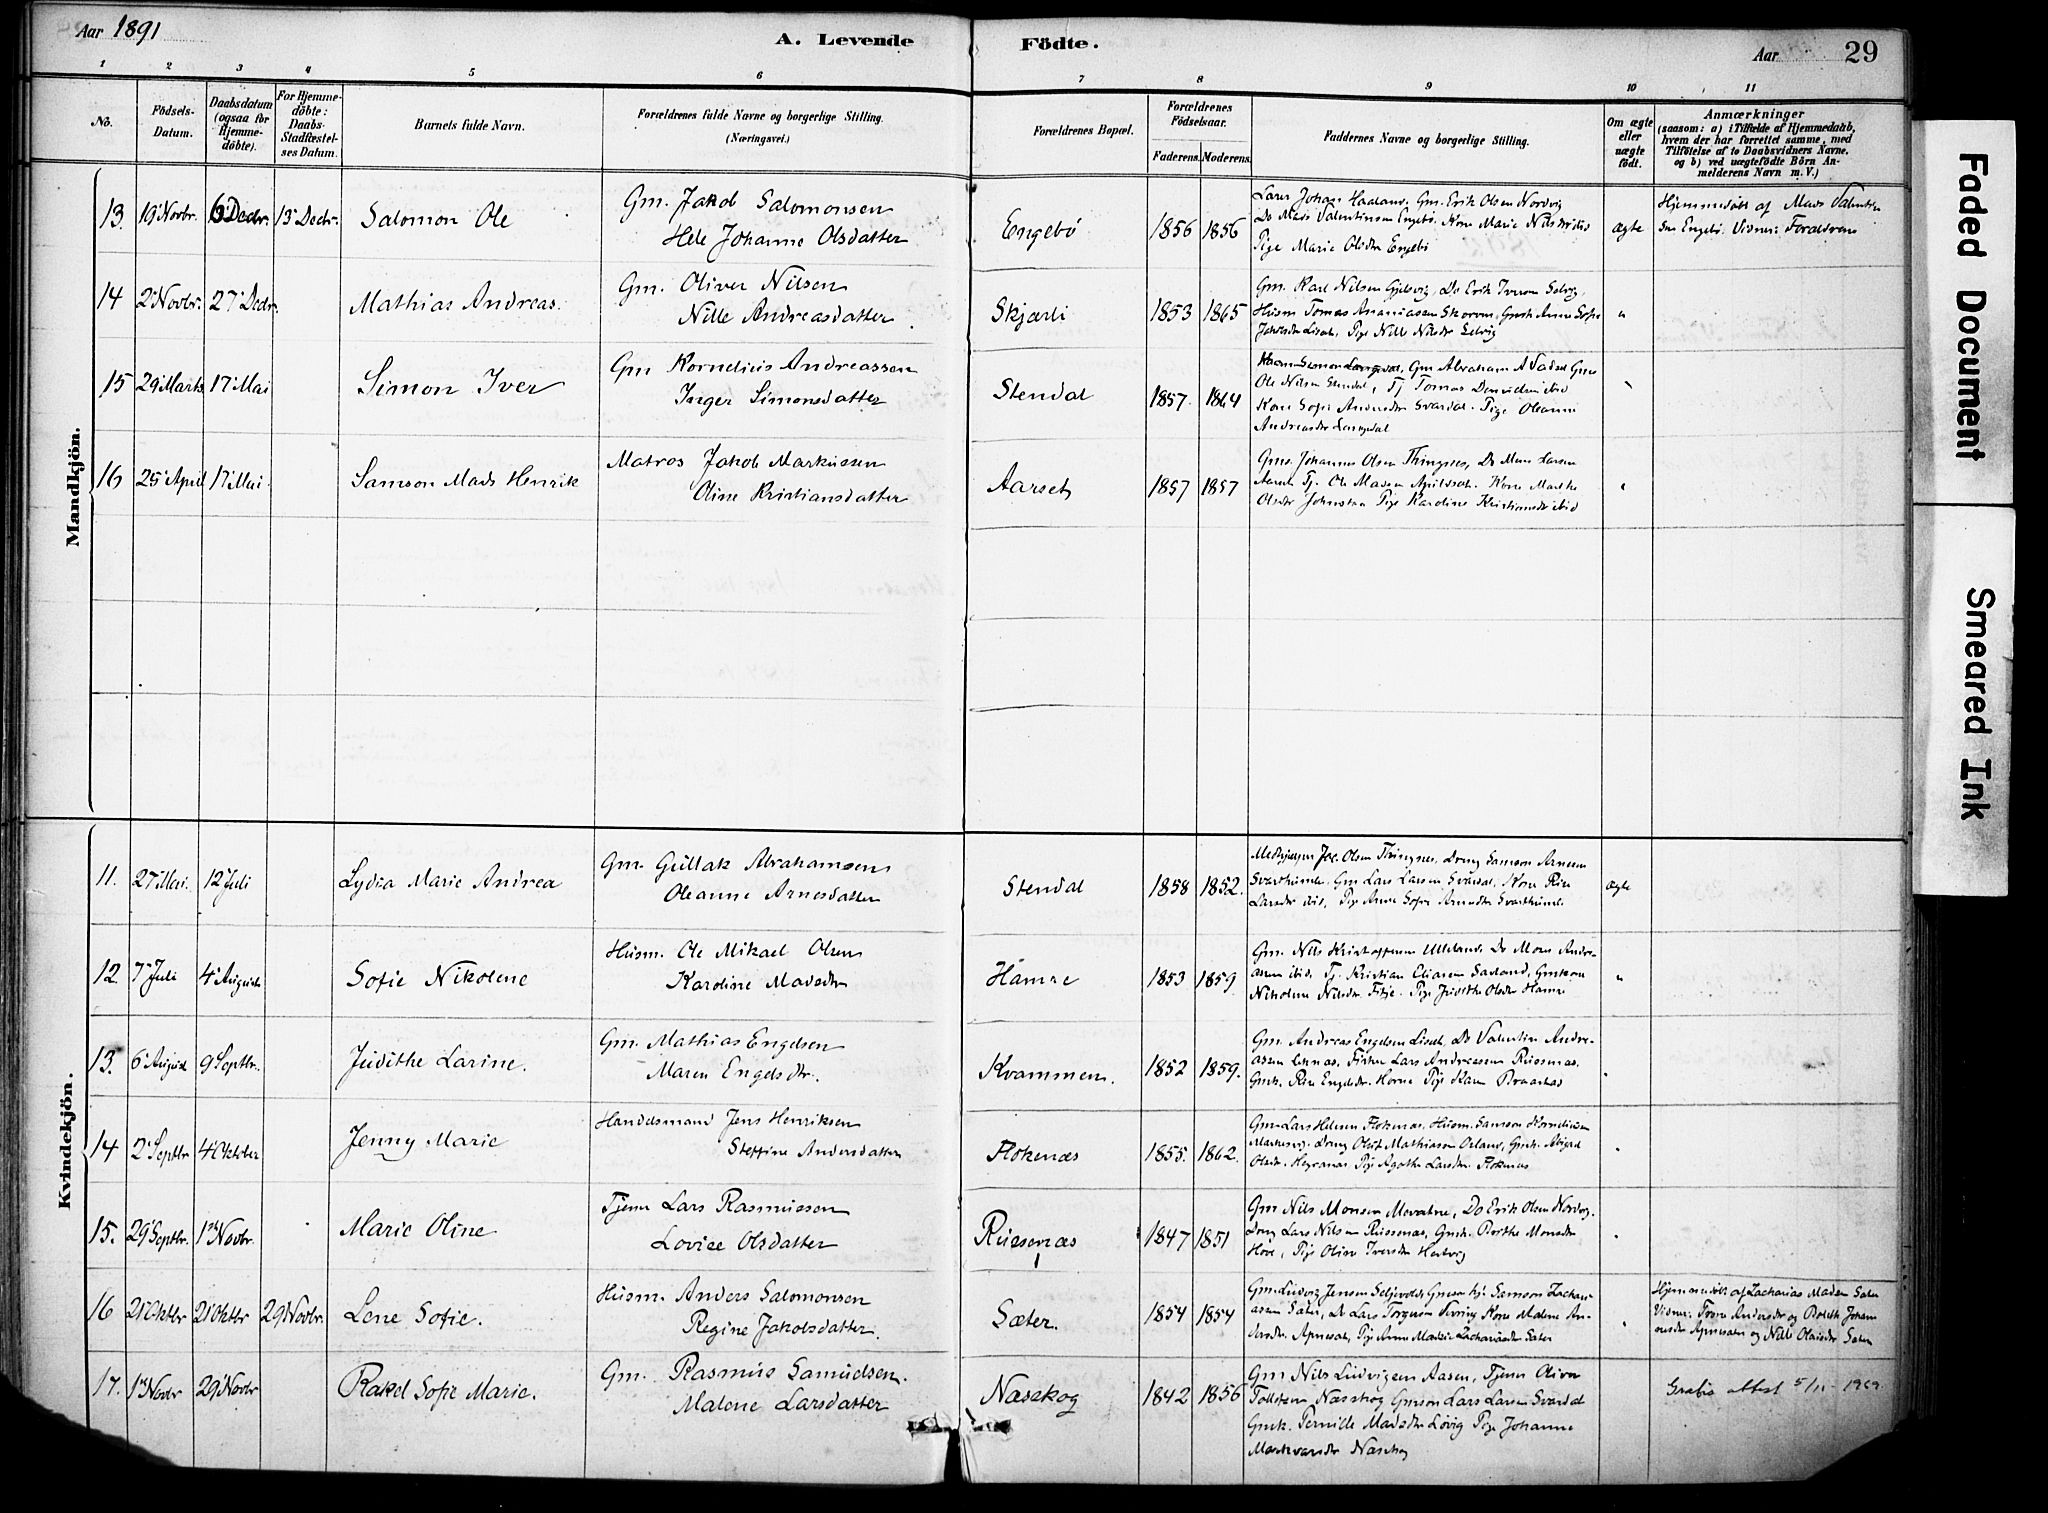 Aar 1891
A. Levende Födte.
Aar 29
1 2 3 4 5 6 7 8 9 10 11
No.
Födsels-Datum.
Daabsdatum (ogsaa for Hjemme-döbte).
For Hjemme-döbte: Daabs-Stadfæstel-ses Datum.
Barnets fulde Navn.
Forældrenes fulde Navne og borgerlige Stilling.
(Næringsvei.)
Forældrenes Bopæl.
Forældrenes Födselsaar.
Faderens. Moderens.
Faddernes Navne og borgerlige Stilling.
Om ægte eller uægte födt.
Anmærkninger
(saasom: a) i Tilfælde af Hjemmedaab,
hvem der har forrettet samme, med
Tilföielse af to Daabsvidners Navne.
og b) ved uægtefödte Börn An-
melderens Navn m. V.)
Mandkjön.
13. 19 Novbr. 6 Decbr. 13 Decbr. Salomon Ole
Gm. Jakob Salomonsen
Hele Johanne Olsdatter
Engebö 1856 1856
Lars Johan Haaland, Gm. Erik Olsen Nordvig
Do Mads Valentinsen Engebö. Kone Marie
Pige Marie Olsdtr Engebö
ægte
Hjemmedöbt af Mads Valentin
sen Engebö. Vidner: Forældrene
14 2 Novbr. 27 Decbr. Mathias Andreas.
Gm. Oliver Nilsen
Nille Andreasdatter
Skjærli 1853 1865
Gm. Karl Nilsen Gjelsvig, Do Erik Iversen Selvig,
Husm Tomas Ananiassen Skorven, Gmk Anne Sofie
Pige Nille Nilsdtr Selvig
"
15 29 Marts 17 Mai Simon Iver
Gm Kornelius Andreassen
Inger Simonsdatter
Stendal 1857. 1864
Gm Abraham A
Ole Nilsen Stendal, Tj Tomas ibid
Kone Sofie Andersdtr Svardal. Pige Oleanne
Andreasdtr Langedal
16 25 April 17 Mai. Samson Mads Henrik
Matros Jakob Markussen
Oline Kristiansdatter
Aarset 1857 1857
Gms. Johannes Olsen Thingnes, Do Mons Larsen
Aarset Tj. Ole Madsen Kone Marthe
Olsdtr Pige Karoline Kristiansdtr ibid
Kvindekjön.
11. 27 Mai. 12 Juli Lydia Marie Andrea
Gm. Gullak Abrahamsen
Oleanne Arnesdatter
Stendal 1858 1852.
Jac. Olsen Thingnes, Dreng Samson Arnesen
Svarthumle. Gm Lars Larsen Svardal. Kone
Larsdtr ibid, Pige Anne Sofie Arnesdtr Svarthumle
ægte
12. 7 Juli 4 August Sofie Nikolene
Husm. Ole Mikael Olsen
Karoline Madsdtr
Hamre 1853 1859.
Gm. Nils Kristoffersen Ulleland. Do Mons Andre-
assen ibid, Tj. Kristian Eliasen Gmkone
Nikoline Nilsdtr. Fitje. Pige Judithe Olsdtr Hamre
"
13. 6 August 9 Septbr. Judithe Larine.
Gm. Mathias Engelsen
Maren Engelsdtr.
Kvammen. 1852 1859.
Gm. Andreas Engelsen Do Valentin Andre-
assen Lars Andreassen Russenæs.
Gmk. Engelsdtr. Horne Pige Karen
14 2 Septbr 4 Oktober Jenny Marie
Handelsmand Jens Henriksen
Steffine Andersdatter
Flokenæs 1855. 1862.
Gm Lars Helgesen Flokenæs. Husm. Samson Korneliusen
Dreng Oluf Mathiassen Gmk. Abigael
Olsdtr. Pige Agathe Larsdtr. Flokenæs
15. 29 Septbr. 1 Novbr. Marie Oline
Tjener Lars Rasmussen
Lovise Olsdatter
Russenæs 1847 1851
Gm Nils Monsen Do Erik Olsen Nordvig.
Dreng Lars Nilsen Russenæs, Gmk. Berthe Monsdtr
Hove, Pige Oline Iversdtr
16 21 Oktbr 21 Oktbr 29 Novbr. Lene Sofie.
Husm. Anders Salomonsen
Regine Jakobsdatter.
Sæter. 1854 1854
Gm Ludvig Jensen Samson Zachari-
assen Sæter, Do Lars Torgersen Kone Malene An-
dersdtr. Pige Anne Zachariasdtr Sæter
Hjemmedöbt af Zacharias Madsen Sæter
Vidner: Andersdtr og Johan
og Nille Olaisdtr Sæter
17. 1 Novbr 29 Novbr Rakel Sofie Marie.
Gm. Rasmus Samuelsen.
Malene Larsdatter
Næsskog 1842 1856
Gm Nils Ludvigsen Aasen, Tjener Oliver
Tollefsen Næsskog Gmsön Lars Larsen Svardal
Gmk. Pernille Madsdtr Lövig Pige Johanne
Markvardtr Næsskog
Gratis attest 5/11 1969
Faded Document
Smeared Ink